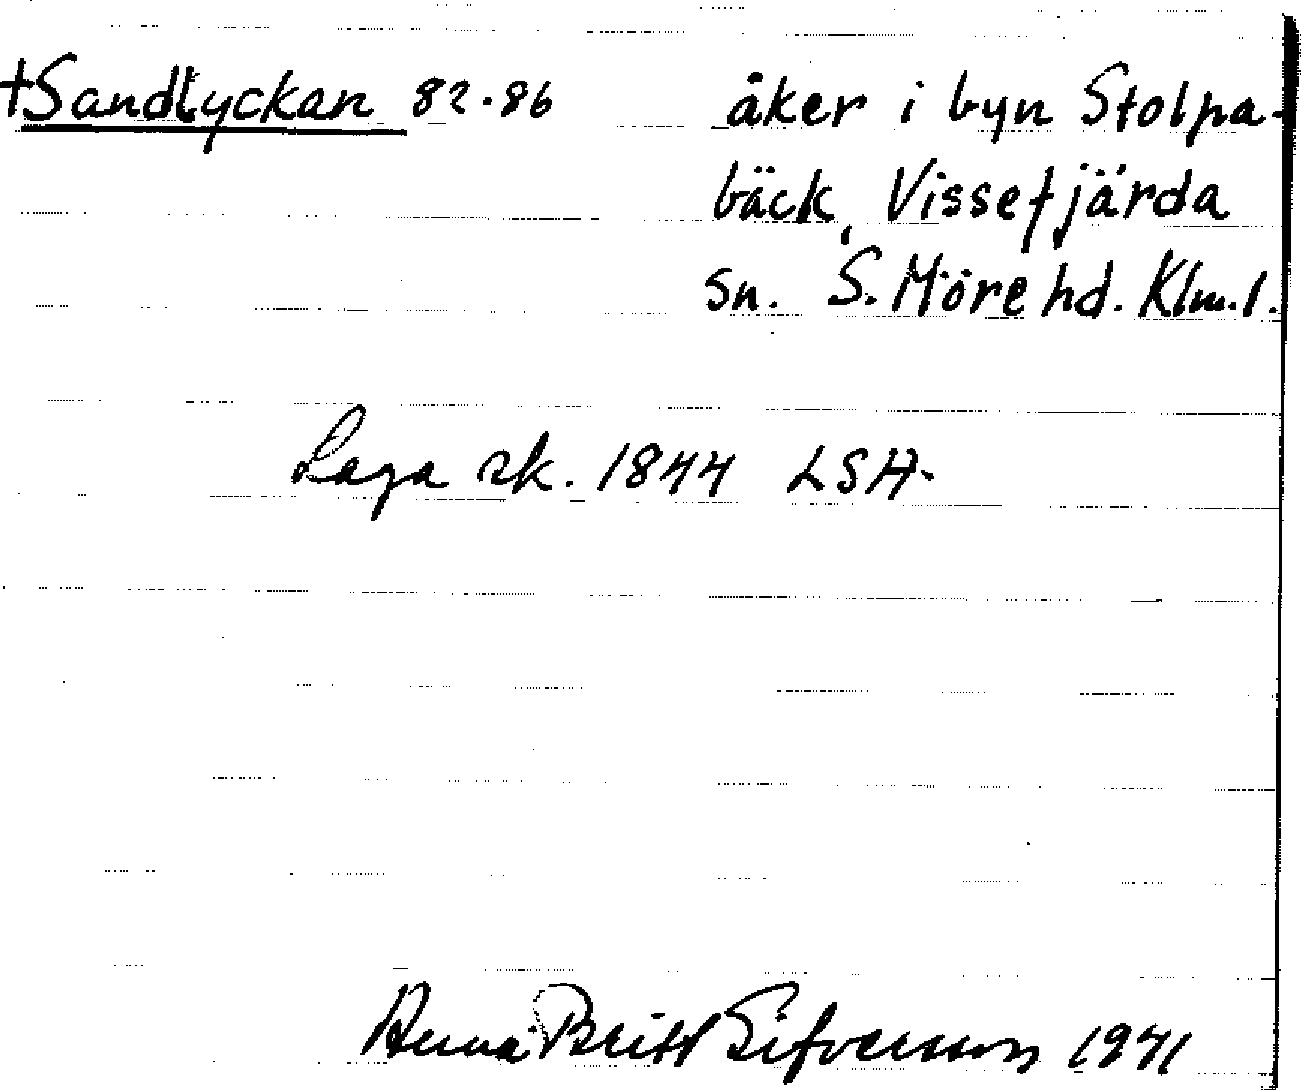 †Sandlyckan 82-86 åker i byn Stolpa-
bäck, Vissefjärda
sn. S. Möre hd. Klm. l.
Laga sk. 1844 LSA.
Anna Britt Sifversson 1971